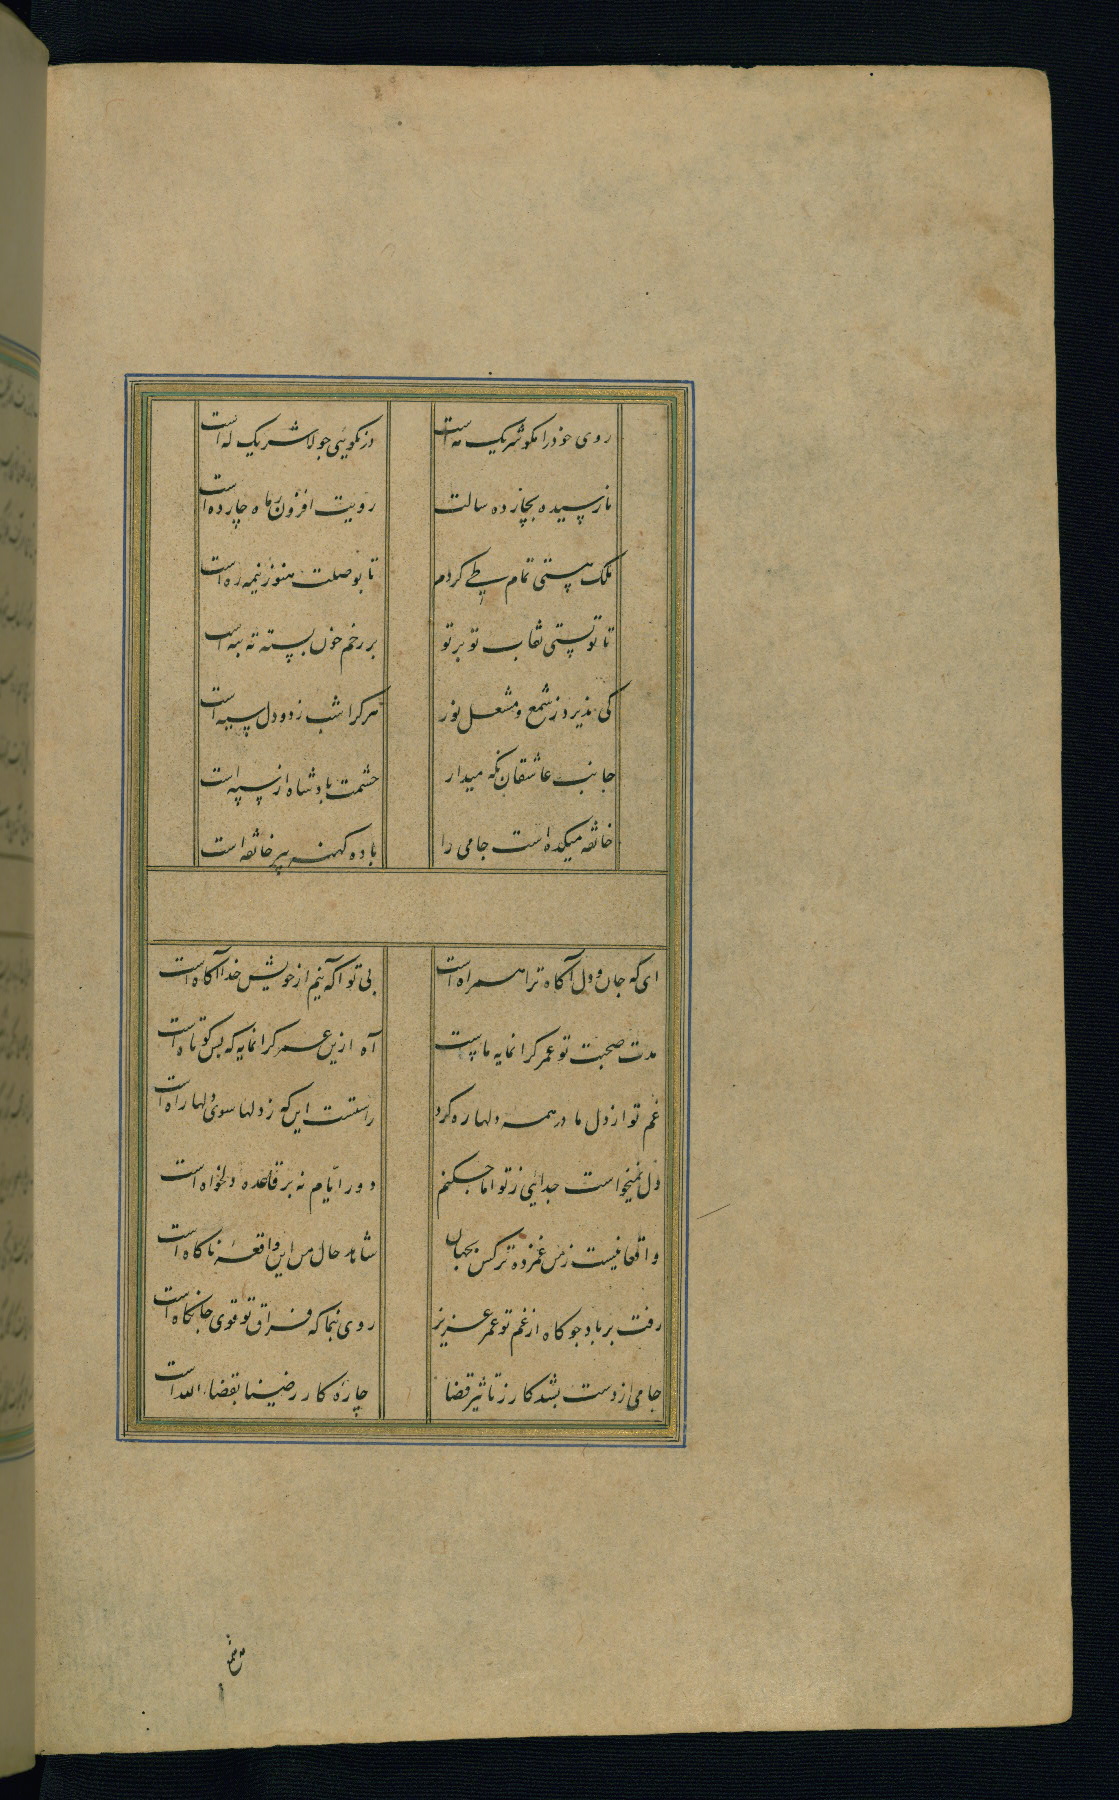 روی خود را مگو شریک مه است
در نکویی چو لا شریک له است
نارسیده بچارده سالت
رویت افزون ز ماه چارده است
ملک هستی تمام طی کردم
تا بوصلت هنوز نیمه ره است
تا تو بستی نقاب تو بر تو
بر رخم خون بسته ته بته است
کی پذیرد ز شمع و مشعل نور
هر کرا شب ز دود دل سیه است
جانب عاشقان نکه میدار
حشمت پادشاه از سپه است
خانقه میکده است جامی را
باده کهنه پیر خانقه است
ای که جان و دل آکاه ترا همراه است
بی تو اکه نیم از خویش خدا آکاه است
مدت صحبت تو عمر کرانمایه ماست
آه ازین عمر کرانمایه که بس کوتاه است
غم تو از دل ما در همه دلها ره کرد
راستست این که ز دلها سوی دلها راه است
دل نمیخواست جدایی ز تو اما چکنم
دور ایام نه بر قاعده دلخواه است
واقعا نیست ز من غمزده تر کس بجهان
شاهد حال من این واقعه ناکاه است
رفت بر باد چو کاه از غم تو عمر عزیز
روی بنما که فراق تو قوی جانکاه است
جامی از دست بشد کار ز تاثیر قضا
چاره کار رضینا بقضاء الله است